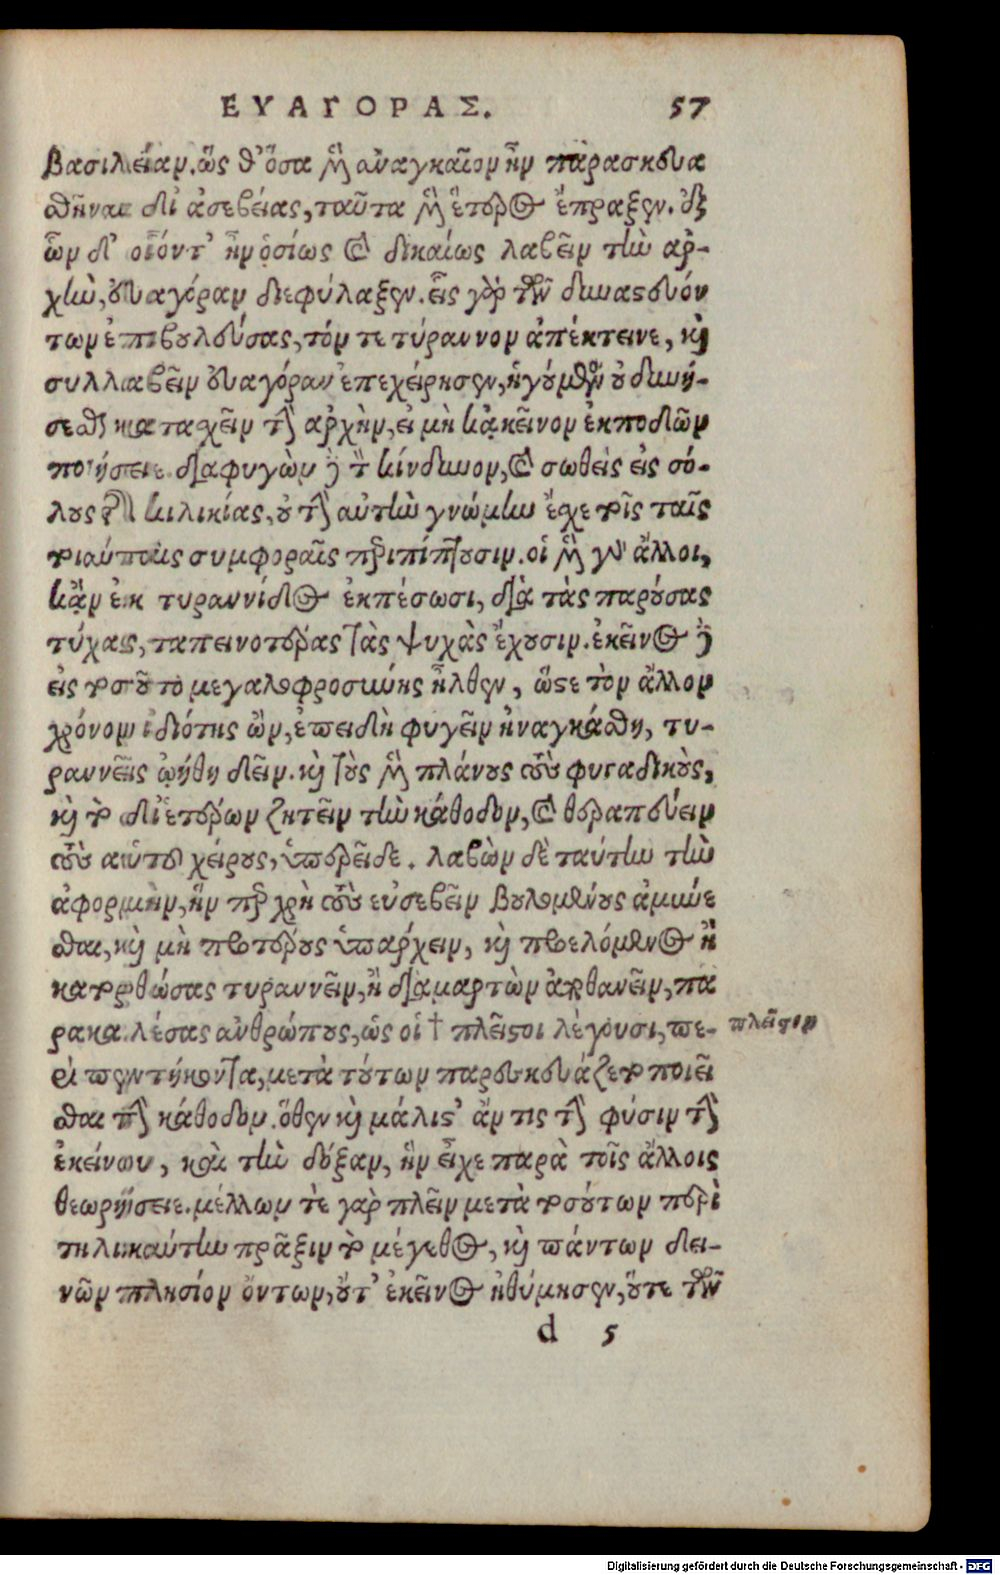 ΕΥΑΓΟΡΑΣ. 57
βασιλείαν. ὥς θ' ὅσα μὲν ἀναγκαῖον ἦν παρασκευα
σθῆναι δι' ἀσεβείας, ταῦτα μὲν ἕτερος ἔπραξεν. ἐξ
ὧν δ' οἷόντ' ἦν ὁσίως καὶ δικαίως λαβεῖν τὴν ἀρ-
χὴν, εὐαγόραν διεφύλαξεν. εἷς γὰρ τῶν δυναστευόν
των ἐπιβουλεύσας, τόν τε τύραννον ἀπέκτεινε, καὶ
συλλαβεῖν εὐαγόραν ἐπεχείρησεν, ἡγούμενος οὐ δυνή-
σεσθαι κατασχεῖν τὴν ἀρχὴν, εἰ μὴ κἀκεῖνον ἐκποδὼν
ποιήσειε. διαφυγὼν δὲ τὸν κίνδυνον, καὶ σωθεὶς εἰς σό-
λους τῆς κιλικίας, οὐ τὴν αὐτὴν γνώμην ἔσχε τοῖς ταῖς
τοιαύταις συμφοραῖς περιπίπτουσιν. οἱ μὲν γὰρ ἄλλοι,
κἂν ἐκ τυραννίδος ἐκπέσωσι, διὰ τὰς παρούσας
τύχας, ταπεινοτέρας τὰς ψυχὰς ἔχουσιν. ἐκεῖνος δὲ
εἰς τοσοῦτο μεγαλοφροσύνης ἦλθεν, ὥστε τὸν ἄλλον
χρόνον ἰδιότης ὢν, ἐπειδὴ φυγεῖν ἠναγκάσθη, τυ-
ραννεῖν ᾠήθη δεῖν. καὶ τοὺς μὲν πλάνους τοὺς φυγαδικοὺς,
καὶ τὸ δι' ἑτέρων ζητεῖν τὴν κάθοδον, καὶ θεραπεύειν
τοὺς αὑτοῦ χείρους, ὑπερεῖδε. λαβὼν δὲ ταύτην τὴν
ἀφορμὴν, ἥν περ χρὴ τοὺς εὐσεβεῖν βουλομένους ἀμύνε
σθαι, καὶ μὴ προτέρους ὑπάρχειν, καὶ προελόμενος ἢ
κατορθώσας τυραννεῖν, ἢ διαμαρτὼν ἀποθανεῖν, πα
ρακαλέσας ἀνθρώπους, ὡς οἱ † πλεῖστοι λέγουσι, πε-
ρὶ πεντήκοντα, μετὰ τούτων παρεσκευάζετο ποιεῖ
σθαι τὴν κάθοδον. ὅθεν καὶ μάλιστ' ἄν τις τὴν φύσιν τὴν
ἐκείνου, καὶ τὴν δόξαν, ἣν εἶχε παρὰ τοῖς ἄλλοις
θεωρήσειε. μέλλων τε γὰρ πλεῖν μετὰ τοσούτων περὶ
τηλικαύτην πρᾶξιν τὸ μέγεθος, καὶ πάντων δει-
νῶν πλησίον ὄντων, οὔτ' ἐκεῖνος ἠθύμησεν, οὔτε τῶν
πλεῖστον
d 5
Digitalisierung gefördert durch die Deutsche Forschungsgemeinschaft - DFG